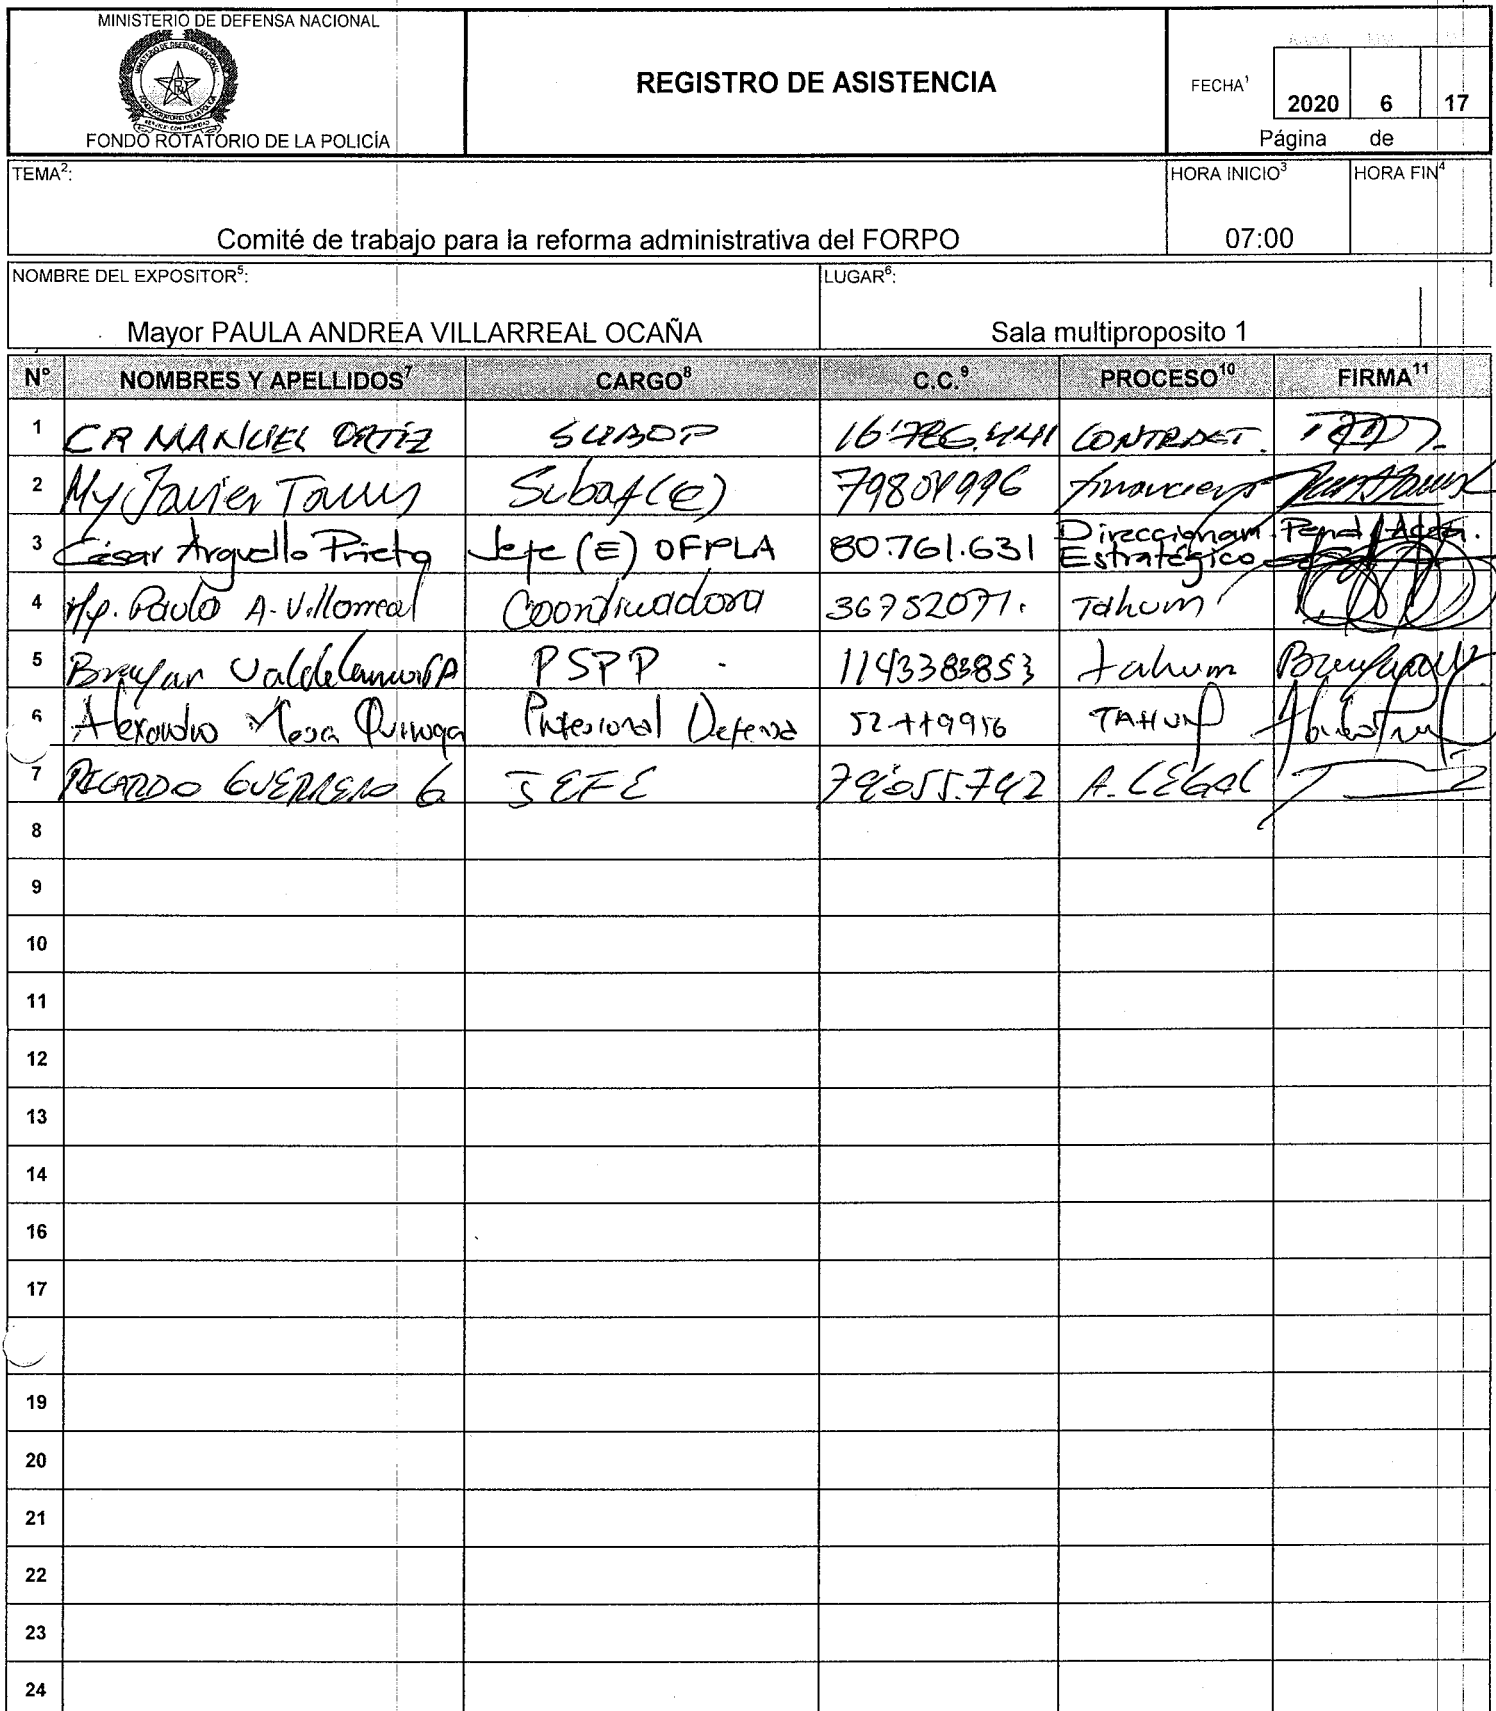 MINISTERIO DE DEFENSA NACIONAL
FONDO ROTATORIO DE LA POLICÍA
REGISTRO DE ASISTENCIA
FECHA¹ 2020 6 17
Página de
TEMA²: HORA INICIO³ HORA FIN⁴
Comité de trabajo para la reforma administrativa del FORPO 07:00
NOMBRE DEL EXPOSITOR⁵: LUGAR⁶:
Mayor PAULA ANDREA VILLARREAL OCAÑA Sala multiproposito 1
N° NOMBRES Y APELLIDOS⁷ CARGO⁸ C.C.⁹ PROCESO¹⁰ FIRMA¹¹
1 CR MANUEL ORTIZ SUBOP 16.786.441 CONTRAST.
2 My Javier Subaf (E) Financiero
3 César Arguello Prieto Jefe (E) OFPLA 80.761.631 Direccionam Estratégico
4 My. Paula A. Villarreal Coordinadora 36752071. Tahum
5 Brayan PSPP 1143383853 tahum
6 Alexandra Mesa Quiroga Profesional Defensa TAHUM
7 RICARDO GUERRERO G. JEFE A. LEGAL
8
9
10
11
12
13
14
16
17
19
20
21
22
23
24